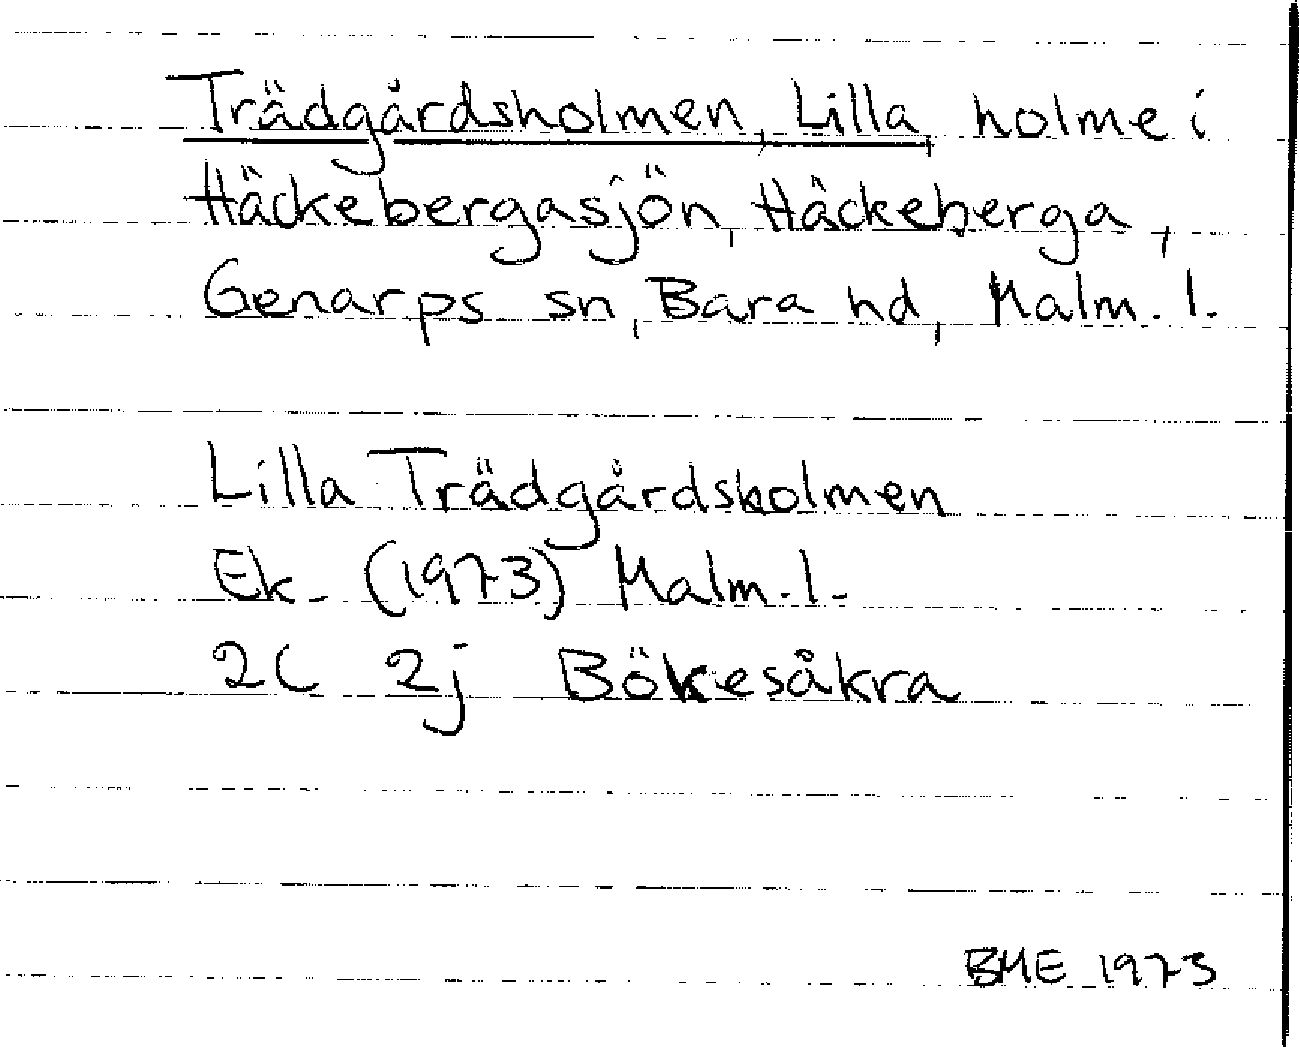 Trädgårdsholmen, Lilla, holme i
Häckebergasjön, Häckeberga,
Genarps sn, Bara hd, Malm. l.
Lilla Trädgårdsholmen
Ek. (1973) Malm. l.
2C 2j Bökesåkra
BME 1973